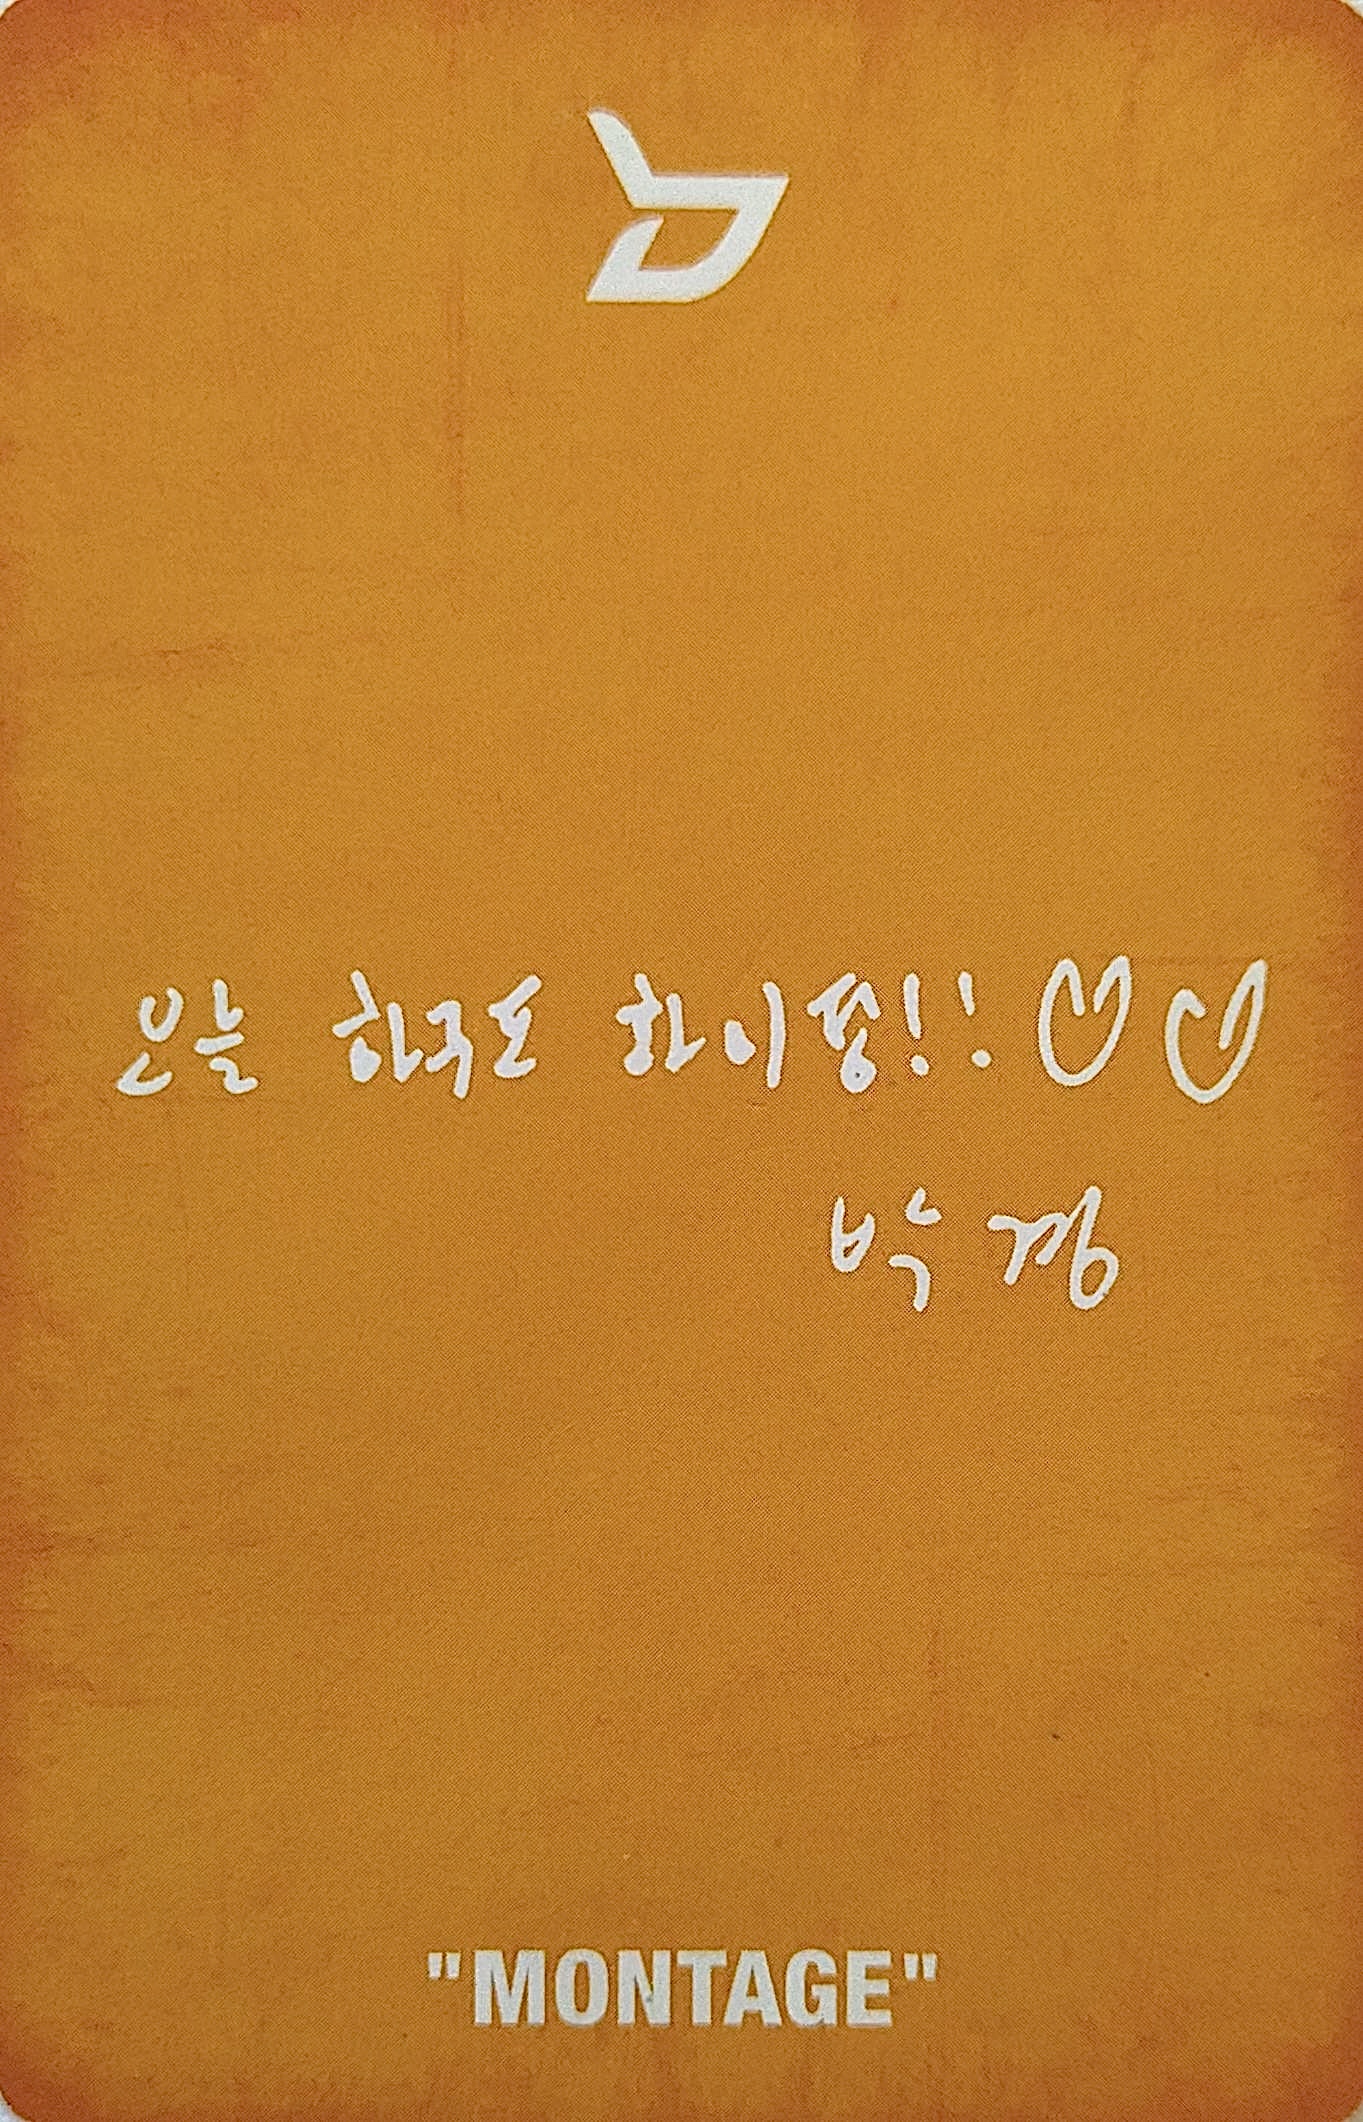 오늘 하루도 화이팅!! ♡♡
박경
"MONTAGE"